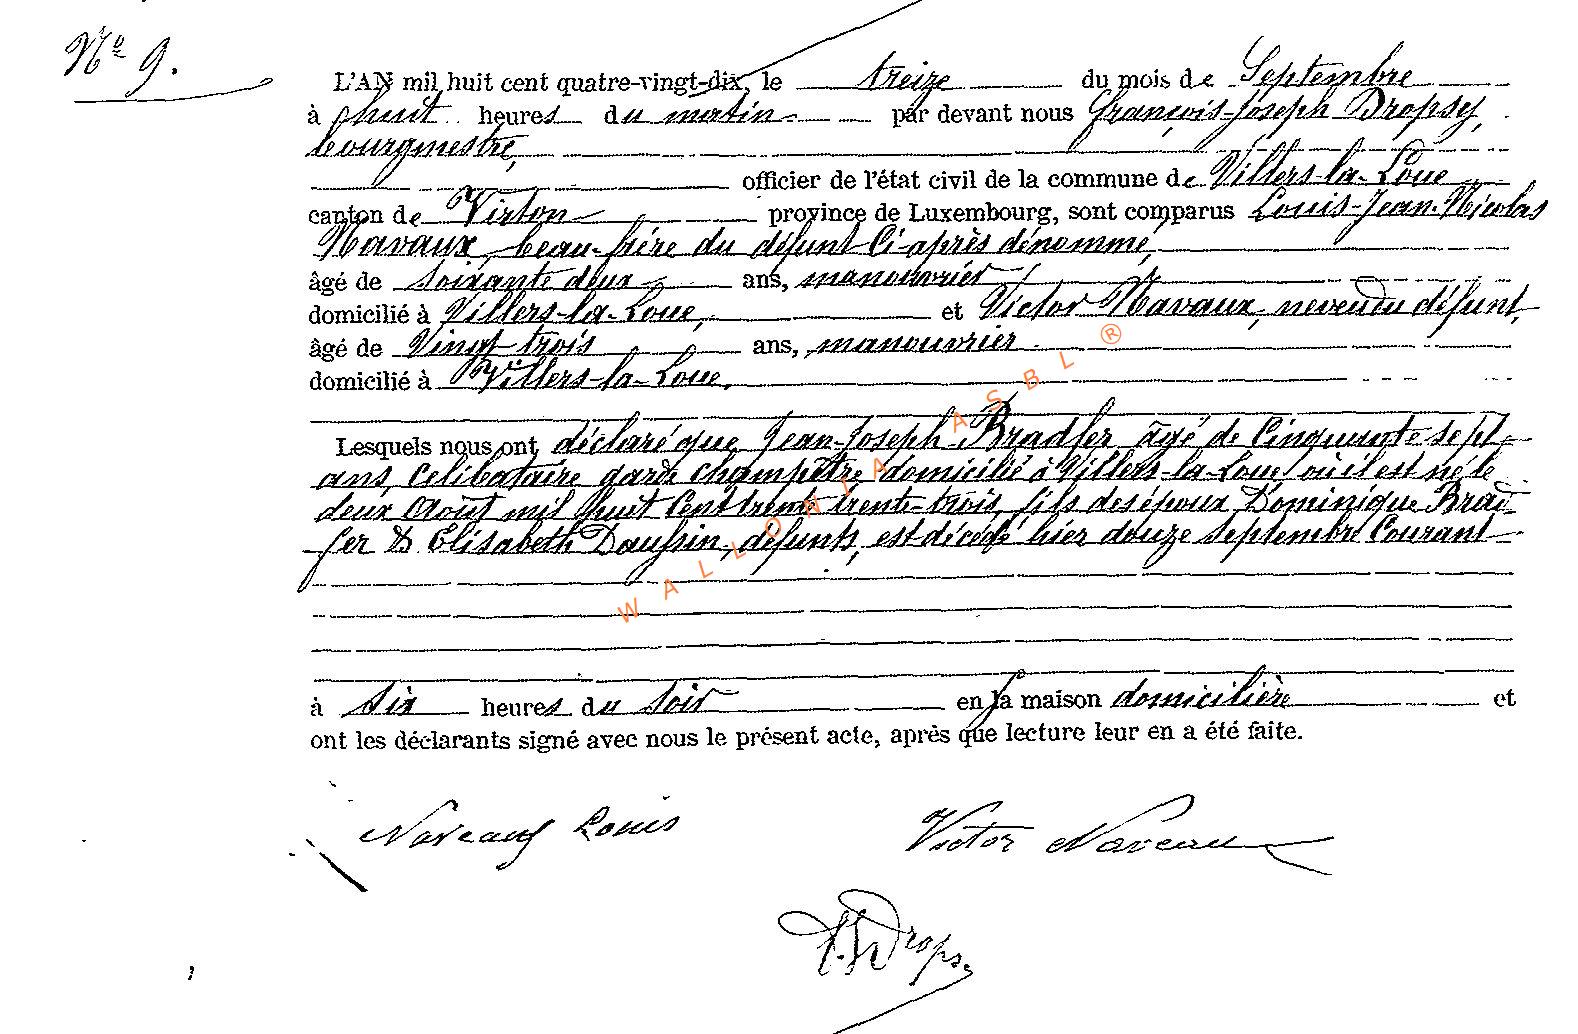 Nº 9.
L'AN mil huit cent quatre-vingt-dix, le treize du mois de Septembre
à huit heures du matin par devant nous françois-Joseph Dropsy,
bourgmestre,
officier de l'état civil de la commune de Villers-la-Loue
canton de Virton province de Luxembourg, sont comparus Louis-Jean-Nicolas
Navaux, beau-frére du défunt Ci-après dénommé,
âgé de soixante deux ans, manouvrier
domicilié à Villers-la-Loue, et Victor Navaux, neveu du défunt,
âgé de Vingt trois ans, manouvrier
domicilié à Villers-la-Loue.
Lesquels nous ont déclaré que Jean-Joseph Bradfer, âgé de Cinquante sept
ans, Celibataire garde champêtre domicilié à Villers-la-Loue où il est né le
deux Août mil huit Cent trente trente-trois, fils des époux Dominique Brad-
fer & Elisabeth Daussin, défunts, est décédé hier douze septembre Courant
à six heures du soir en sa maison domicilière et
ont les déclarants signé avec nous le présent acte, après que lecture leur en a été faite.
Naveaux Louis
Victor Naveau
F. J. Dropsy
WALLONIA ASBL ®